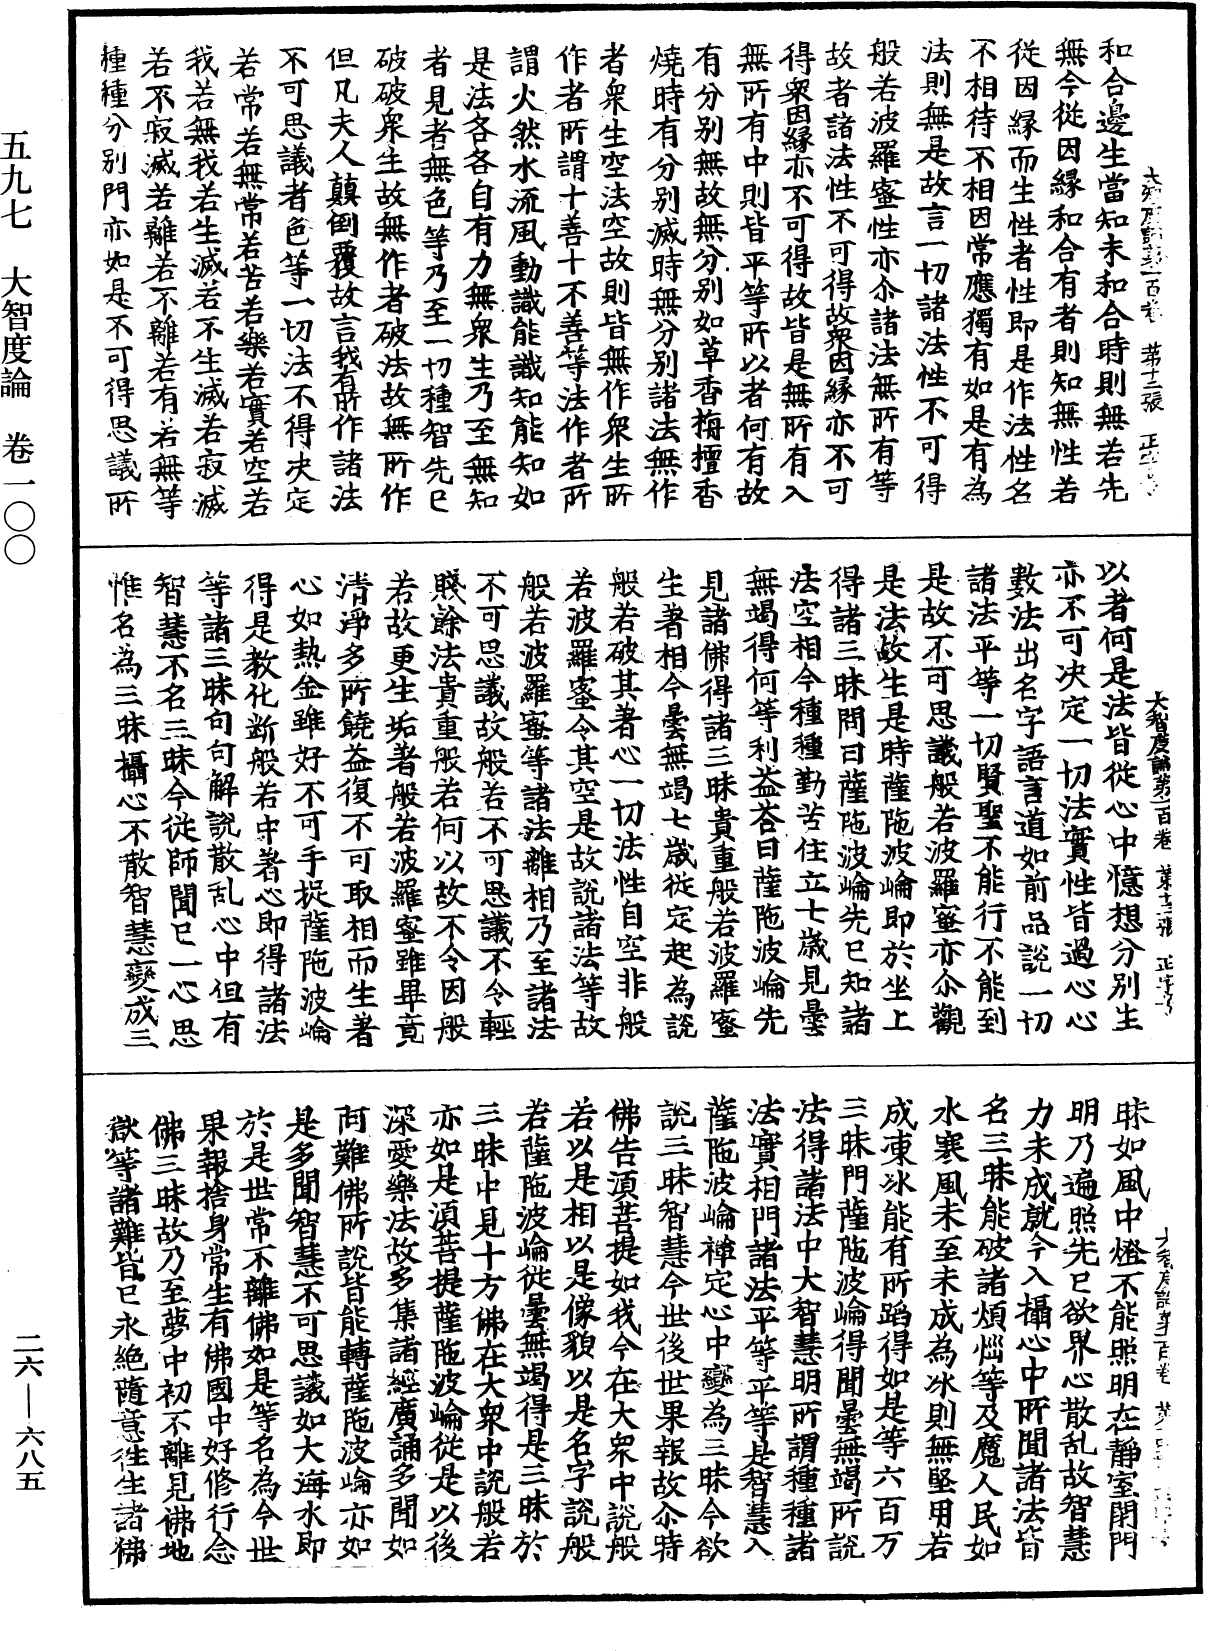 和合邊生當知未和合時則無若先
無今從因緣和合有者則知無性若
從因緣而生性者性即是作法性名
不相待不相因常應獨有如是有為
法則無是故言一切諸法性不可得
般若波羅蜜性亦尒諸法無所有等
故者諸法性不可得故衆因緣亦不可
得衆因緣亦不可得故皆是無所有入
無所有中則皆平等所以者何有故
有分別無故無分別如草香梅檀香
燒時有分別滅時無分別諸法無作
者衆生空法空故則皆無作衆生所
作者所謂十善十不善等法作者所
謂火然水流風動識能識知能知如
是法各各自有力無衆生乃至無知
者見者無色等乃至一切種智先已
破破衆生故無作者破法故無所作
但凡夫人顛倒覆故言我有所作諸法
不可思議者色等一切法不得決定
若常若無常若苦若樂若實若空若
我若無我若生滅若不生滅若寂滅
若不寂滅若離若不離若有若無等
種種分別門亦如是不可得思議所
大智度論第一百卷 第十二張
以者何是法皆從心中憶想分別生
亦不可決定一切法實性皆過心心
數法出名字語言道如前品說一切
諸法平等一切賢聖不能行不能到
是故不可思議般若波羅蜜亦尒觀
是法故生是時薩陁波崘即於坐上
得諸三昧問曰薩陁波崘先已知諸
法空相今種種勤苦住立七歲見曇
無竭得何等利益荅曰薩陁波崘先
見諸佛得諸三昧貴重般若波羅蜜
生著相今曇無竭七歲從定起為說
般若破其著心一切法性自空非般
若波羅蜜令其空是故說諸法等故
般若波羅蜜等諸法離相乃至諸法
不可思議故般若不可思議不令輕
賤餘法貴重般若何以故不令因般
若故更生垢著般若波羅蜜雖畢竟
清淨多所饒益復不可取相而生著
心如熱金雖好不可手捉薩陁波崘
得是教化断般若中著心即得諸法
等諸三昧句句解說散乱心中但有
智慧不名三昧今從師聞已一心思
惟名為三昧攝心不散智慧變成三
大智度論第一百卷 第十三張
昧如風中燈不能照明在靜室閉門
明乃遍照先已欲界心散乱故智慧
力未成就今入攝心中所聞諸法皆
名三昧能破諸煩惱等及魔人民如
水寒風未至未成為冰則無堅用若
成凍冰能有所蹈得如是等六百万
三昧門薩陁波崘得聞曇無竭所說
法得諸法中大智慧明所謂種種諸
法實相門諸法平等平等是智慧入
薩陁波崘禪定心中變為三昧今欲
說三昧智慧今世後世果報故尒時
佛告湏菩提如我今在大衆中說般
若以是相以是像貌以是名字說般
若薩陁波崘從曇無竭得是三昧於
三昧中見十方佛在大衆中說般若
亦如是湏菩提薩陁波崘從是以後
深愛樂法故多集諸經廣誦多聞如
阿難佛所說皆能轉薩陁波崘亦如
是多聞智慧不可思議如大海水即
於是世常不離佛如是等名為今世
果報捨身常生有佛國中好修行念
佛三昧故乃至夢中初不離見佛地
獄等諸難皆已永絕隨意往生諸佛
大智度論第一百卷
五九七 大智度論 卷一〇〇
二六—六八五